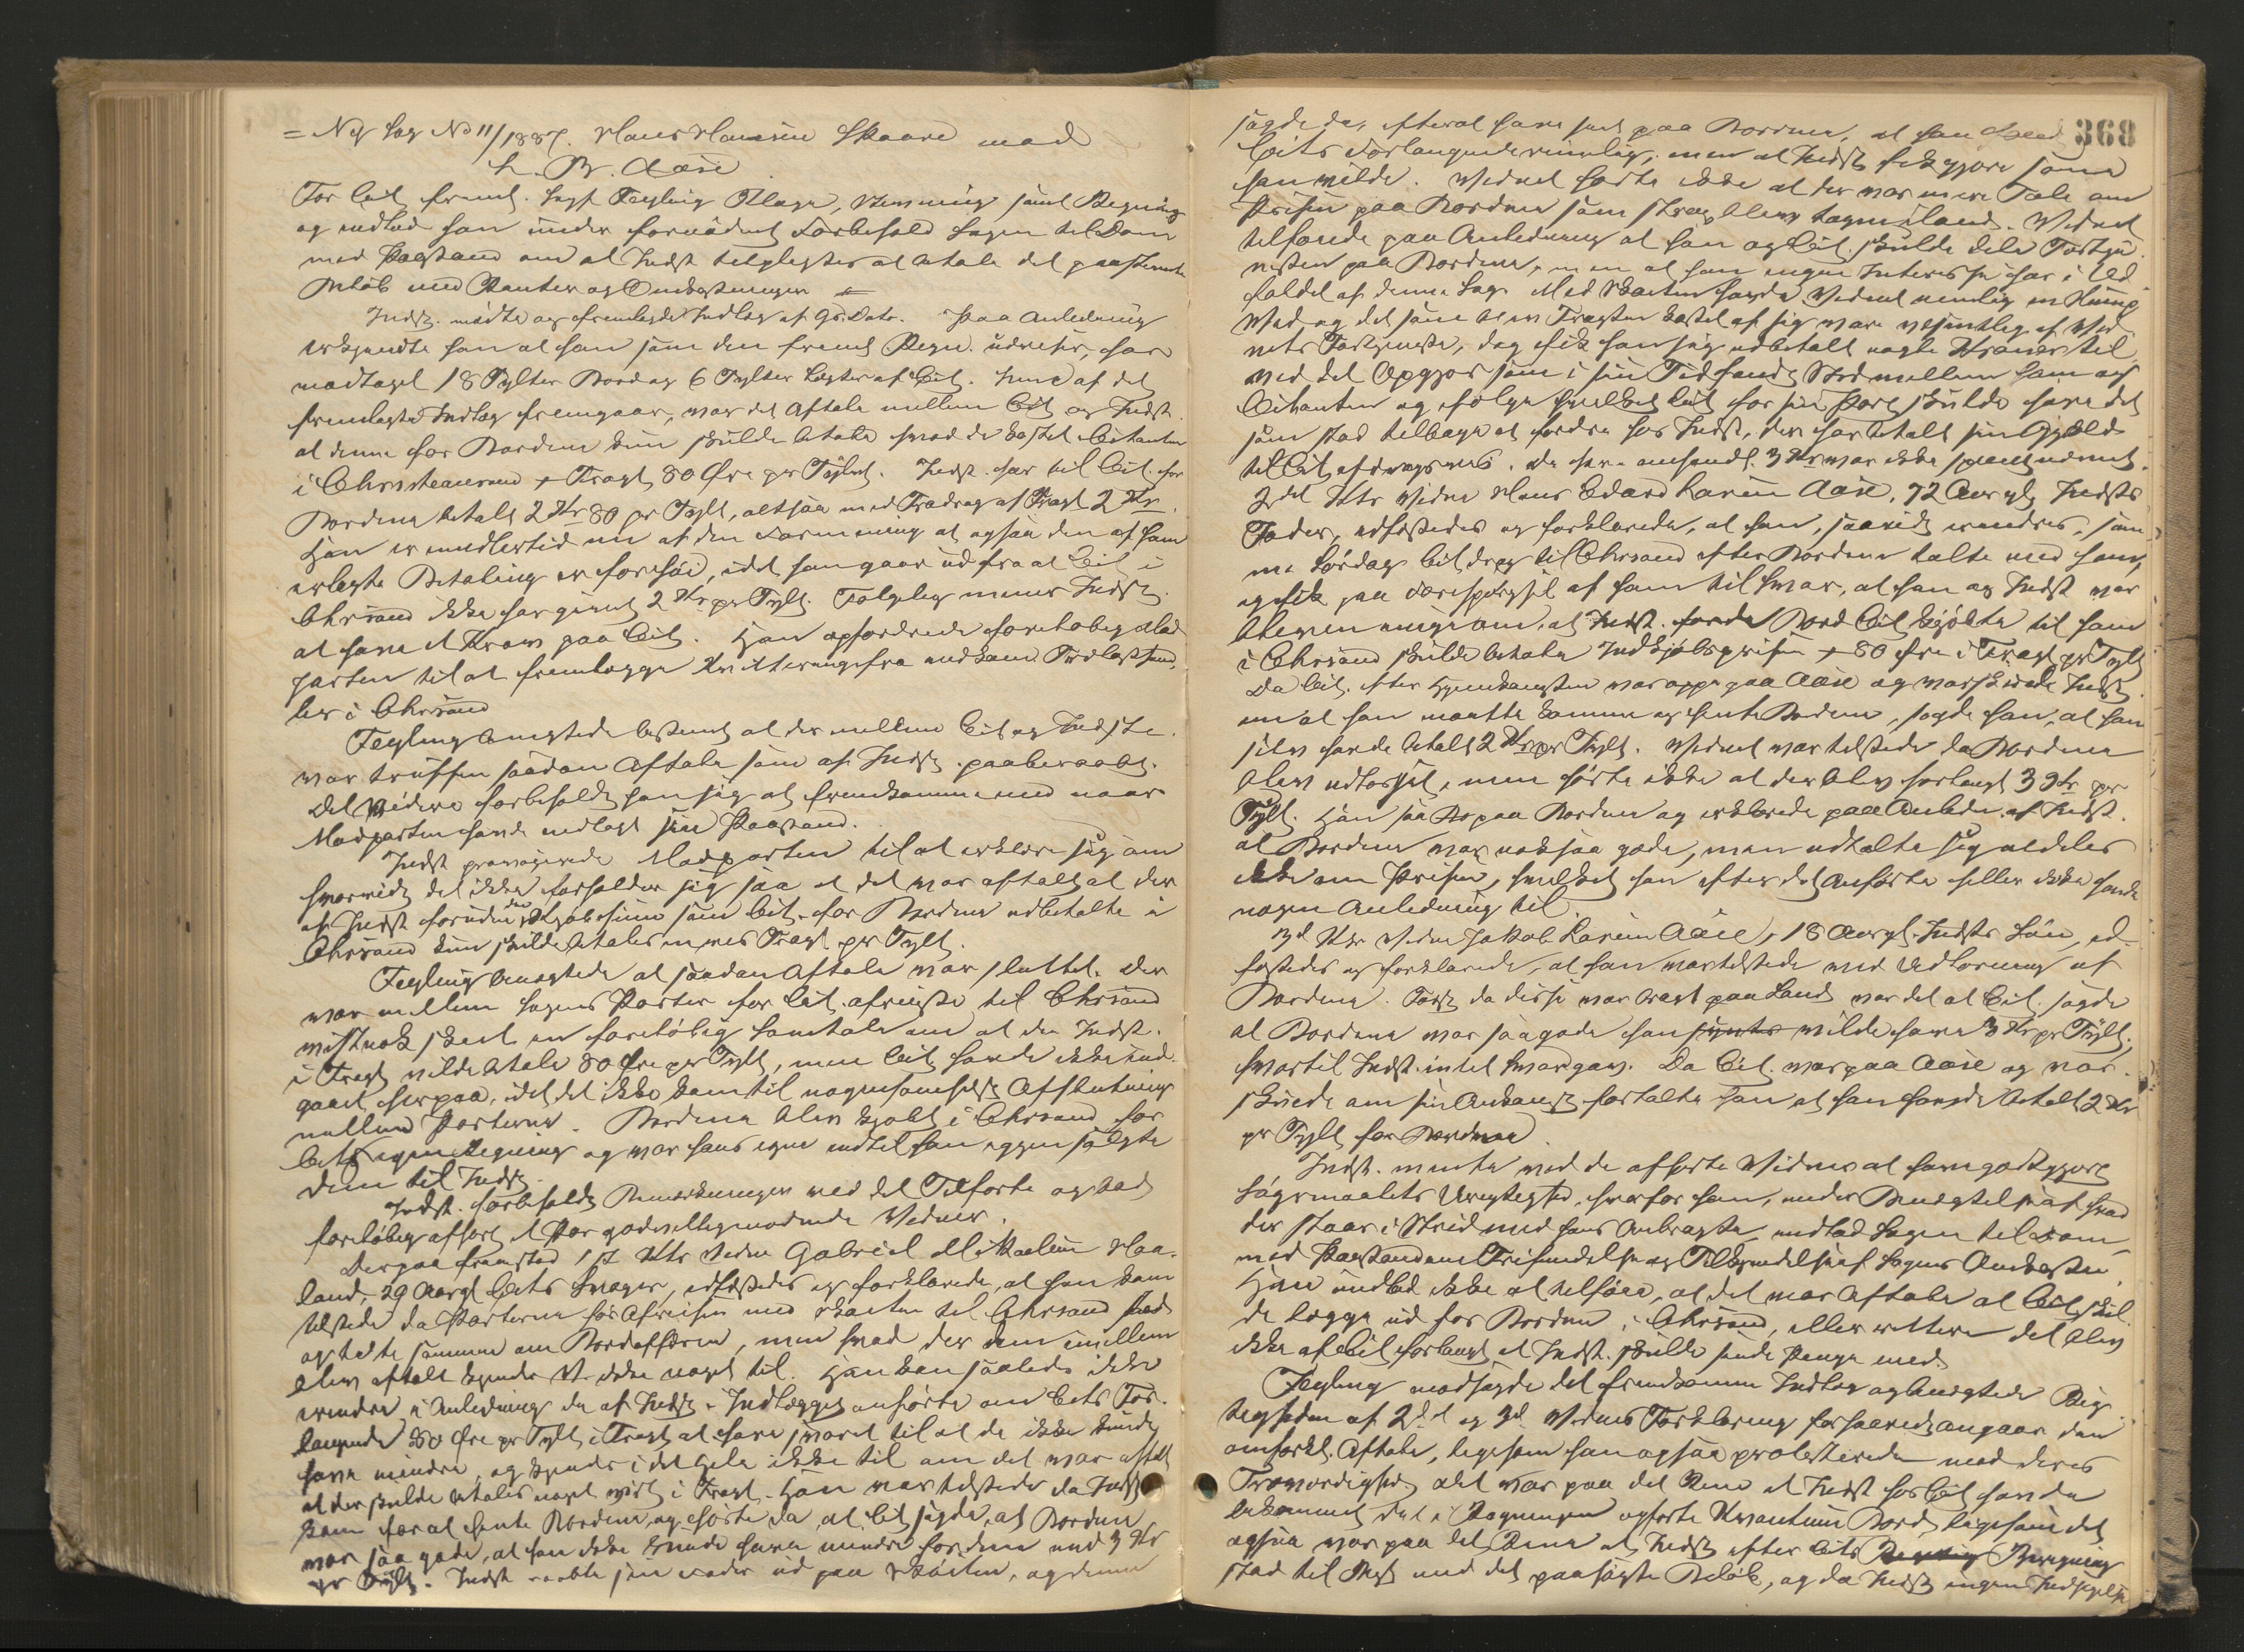 = Ny Sag No 11/1887. Hans Hansen Skaare mod
L. B. Aase.
For Cit. fremst. Sagf. Fegling Klage, Stevning samt Regning
og indlod han under fornødent Forbehold Sagen til Dom
med Paastand om at Indst. tilpligtes at betale det paastevnte
Beløb med Renter og Omkostninger
Indst. mødte og fremlagde Indlæg af Gs. Dato. Paa Anledning
erkjendte han at han som den fremst. Regn. udviser, har
modtaget 18 Tylter Bord og 6 Tylter Lægter af Cit. Som af det
fremlagte Indlæg fremgaar, var det Aftale mellem Cit og Indst.
at denne for Bordene kun skulde betale hvad de kostet Citanten
i Christianssand + Fragt 80 Øre pr Tylvt. Indst. har til Cit. for
Bordene betalt 2 Kr 80 pr Tylt, altsaa med Fradrag af Fragt 2 Kr.
Han er imidlertid nu af den Formening at ogsaa den af ham
erlagte Betaling er for høi, idet han gaar ud fra at Cit i
Chrsand ikke har givet 2 Kr pr Tylt. Følgelig mener Indst.
at have et Krav paa Cit. Han opfordrede foreløbig Mod
parten til at fremlægge Kvitteringe fra vedkom. Trælasthand
ler i Chrsand
Fegling benegtede bestemt at der mellem Cit og Indste.
var truffen saadan Aftale som af Indst. paaberaabt.
Det videre forbeholdt han sig at fremkomme med naar
Modparten havde nedlagt sin Paastand.
Indst provocerede Modparten til at erklære sig om
hvorvidt det ikke forholder sig saa at det var aftalt at der
af Indst foruden den Kjøbesum som Cit. for Bordene udbetalte i
Chrsand kun skulde betales en vis Fragt pr Tylt.
Fegling benegtede at saadan Aftale var sluttet. Der
var mellem Sagens Parter før Cit. afreiste til Chrsand
vistnok skeet en foreløbig Samtale om at da Indst.
i Fragt vilde betale 80 Øre pr Tylt, men Cit. havde ikke ind
gaaet herpaa, idet det ikke kom til nogensomhelst Afslutning
mellem Parterne. Bordene blev kjøbt i Chrsand for
Cits egen Regning og var hans egne indtil han igjen solgte
dem til Indst.
Indst. forbeholdt Bemærkninger ved det Tilførte og bad
foreløbig afhørt et Par godvilligmødende Vidner.
Derpaa fremstod 1st Ktr Vidne Gabriel Mikkelsen Haa-
land, 29 Aar gl Cits Svoger, edfæstedes og forklarede, at han kom
tilstede da Parterne før Afreisen med Skøiten til Chrsand stod
og talte sammen om Bordaffæren, men hvad der dem imellem
blev aftalt kjender V. ikke noget til. Han kan saaledes ikke
erindre i Anledning da af Indst. i Indlægget anførte om Cits For-
langende 80 Øre pr Tylt i Fragt at have svaret til at de ikke kunde
have mindre, og kjender i det hele ikke til om det var aftalt
at der skulde betales noget vist i Fragt. Han var tilstede da Indst
kom for at hente Bordene, og hørte da at Cit sagde at Bordene
var saa gode, at han ikke kunde have mindre for dem end 3 Kr
pr Tylt. Indst raabte sin Fader ud paa Skøiten, og denne
368
sagde da, efterat have seet paa Bordene, at han
Cits Forlangende rimelig, men at Indst fik gjøre som
han vilde. Vidnet hørte ikke at der var mere Tale om
Prisen paa Bordene som strax blev tagen iland. Vidnet
tilføiede paa Anledning at han og Cit. skulde dele Fortje-
nesten paa Bordene, men at han ingen Interesse har i Ud
faldet af denne Sag. Med Skøiten havde Vidnet nemlig en
Med og det som blev Fragten kastet af sig var væsentlig af Vid
nets Fortjeneste, dog fik han sig udbetalt nogle Kroner til
ved det Opgjør som i sin Tid fandt Sted mellem ham og
Citanten og ifølge hvilket Cit for sin Part skulde have det
som stod tilbage at fordre hos Indst, der har betalt sin Gjæld
til Cit afdragsvis. De heromhandl. 3 Kr var ikke specielt nævnt.
2det Ktr Vidne Hans Edvard Larsen Aase, 72 Aar gl, Indsts
Fader, edfæstedes og forklarede, at han, saavidt erindres, sam
me Lørdag Cit drog til Chrsand efter Bordene talte med ham,
og fik paa Forespørgsel af ham til Svar, at han og Indst var
bleven enige om, at Indst. for de Bord Cit kjøbte til ham
i Chrsand skulde betale Indkjøbsprisen + 80 Øre i Fragt pr Tylt
Da Cit. efter Hjemkomsten var oppe paa Aase og varskuede Indst.
om at han maatte komme og hente Bordene, sagde han, at han
selv havde betalt 2 Kr pr Tylt. Vidnet var tilstede da Bordene
blev udlosset, men hørte ikke at der blev forlangt 3 Kr pr
Tylt. Han saa da paa Bordene og erklærede paa Anledn. af Indst.
at Bordene var nok saa gode, men udtalte sig aldeles
ikke om Prisen, hvilket han efter det Anførte heller ikke havde
nogen Anledning til.
3d Ktr Vidne Jakob Larsen Aase, 18 Aar gl. Indsts Søn, ed-
fæstedes og forklarede, at han var tilstede ved Udlosning af
Bordene. Først da disse var bragt paa Land var det at Cit. sagde
at Bordene var saa gode han syntes vilde have 3 Kr pr Tylt.,
hvortil Indst. intet Svar gav. Da Cit. var paa Aase og var-
skuede om sin Ankomst fortalte han at han havde betalt 2 Kr
pr Tylt for Bordene.
Indst. mente ved de afhørte Vidner at have godtgjort
Søgsmaalets Urigtighed, hvorfor han, under Benegtelse af hvad
der staar i Strid med hans Anbragte, indlod Sagen til Dom
med Paastand om Frifindelse og Tilkjendelse af Sagens Omkostn.
Han undlod ikke at tilføie, at det var Aftale at Cit skul
de lægge ud for Bordene i Chrsand, eller rettere det blev
ikke af Cit forlangt at Indst. skulde sende Penge med.
Fegling modsagde det fremkomne Indlæg og benegtede Rig
tigheden af 2det og 3d Vidnes Forklaring forsaavidt angaar den
omforkl. Aftale, ligesom han ogsaa protesterede mod deres
Troværdighed. Det var paa det Rene at Indst fra Cit havde
bekommet det i Regningen opførte Kvantum Bord, ligesom det
ogsaa var paa det Rene at Indst efter Cits Beregning
stod til Rest med det paasøgte Beløb, og da Indst ingen Indsigelse